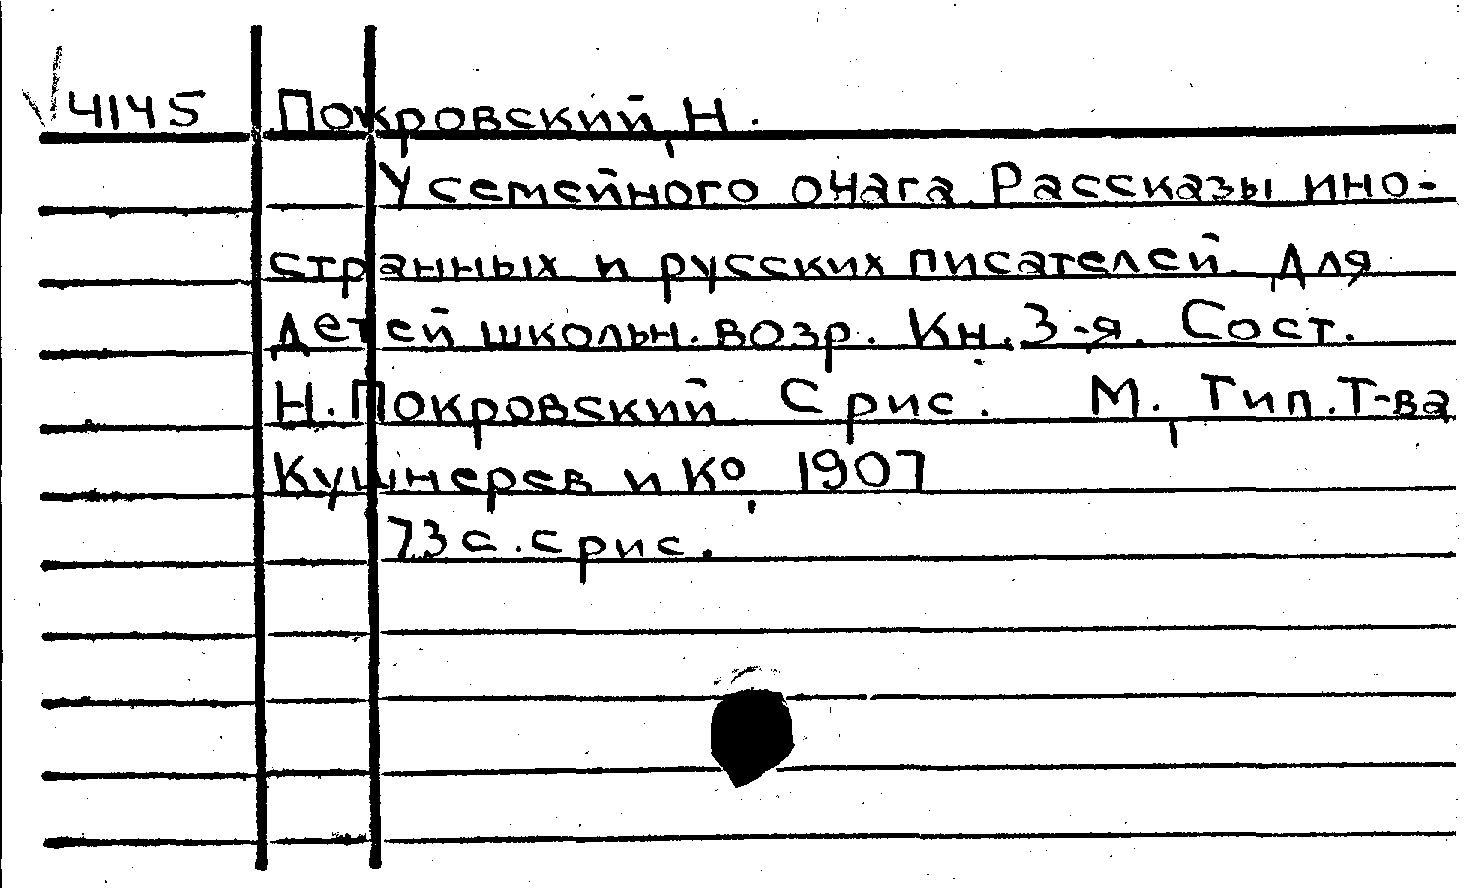 √ 4145 Покровский, Н.
У семейного очага. Рассказы ино-
странных и русских писателей. Для
детей школьн. возр. Кн. 3-я. Сост.
Н. Покровский. С рис. М., Тип. Т-ва
Кушнерев и К°, 1907
73 с. с рис.